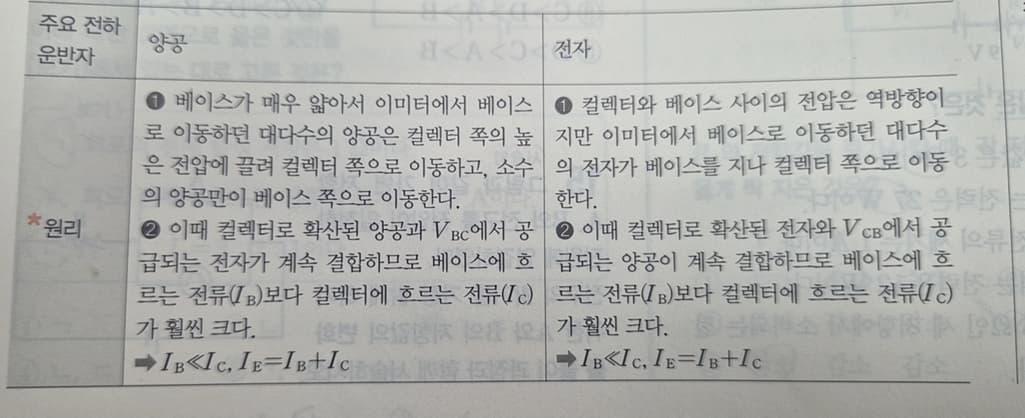 주요 전하
운반자
양공
전자
*원리
❶ 베이스가 매우 얇아서 이미터에서 베이스
로 이동하던 대다수의 양공은 컬렉터 쪽의 높
은 전압에 끌려 컬렉터 쪽으로 이동하고, 소수
의 양공만이 베이스 쪽으로 이동한다.
❷ 이때 컬렉터로 확산된 양공과 V_BC에서 공
급되는 전자가 계속 결합하므로 베이스에 흐
르는 전류(I_B)보다 컬렉터에 흐르는 전류(I_C)
가 훨씬 크다.
➡ I_B≪I_C, I_E=I_B+I_C
❶ 컬렉터와 베이스 사이의 전압은 역방향이
지만 이미터에서 베이스로 이동하던 대다수
의 전자가 베이스를 지나 컬렉터 쪽으로 이동
한다.
❷ 이때 컬렉터로 확산된 전자와 V_CB에서 공
급되는 양공이 계속 결합하므로 베이스에 흐
르는 전류(I_B)보다 컬렉터에 흐르는 전류(I_C)
가 훨씬 크다.
➡ I_B≪I_C, I_E=I_B+I_C